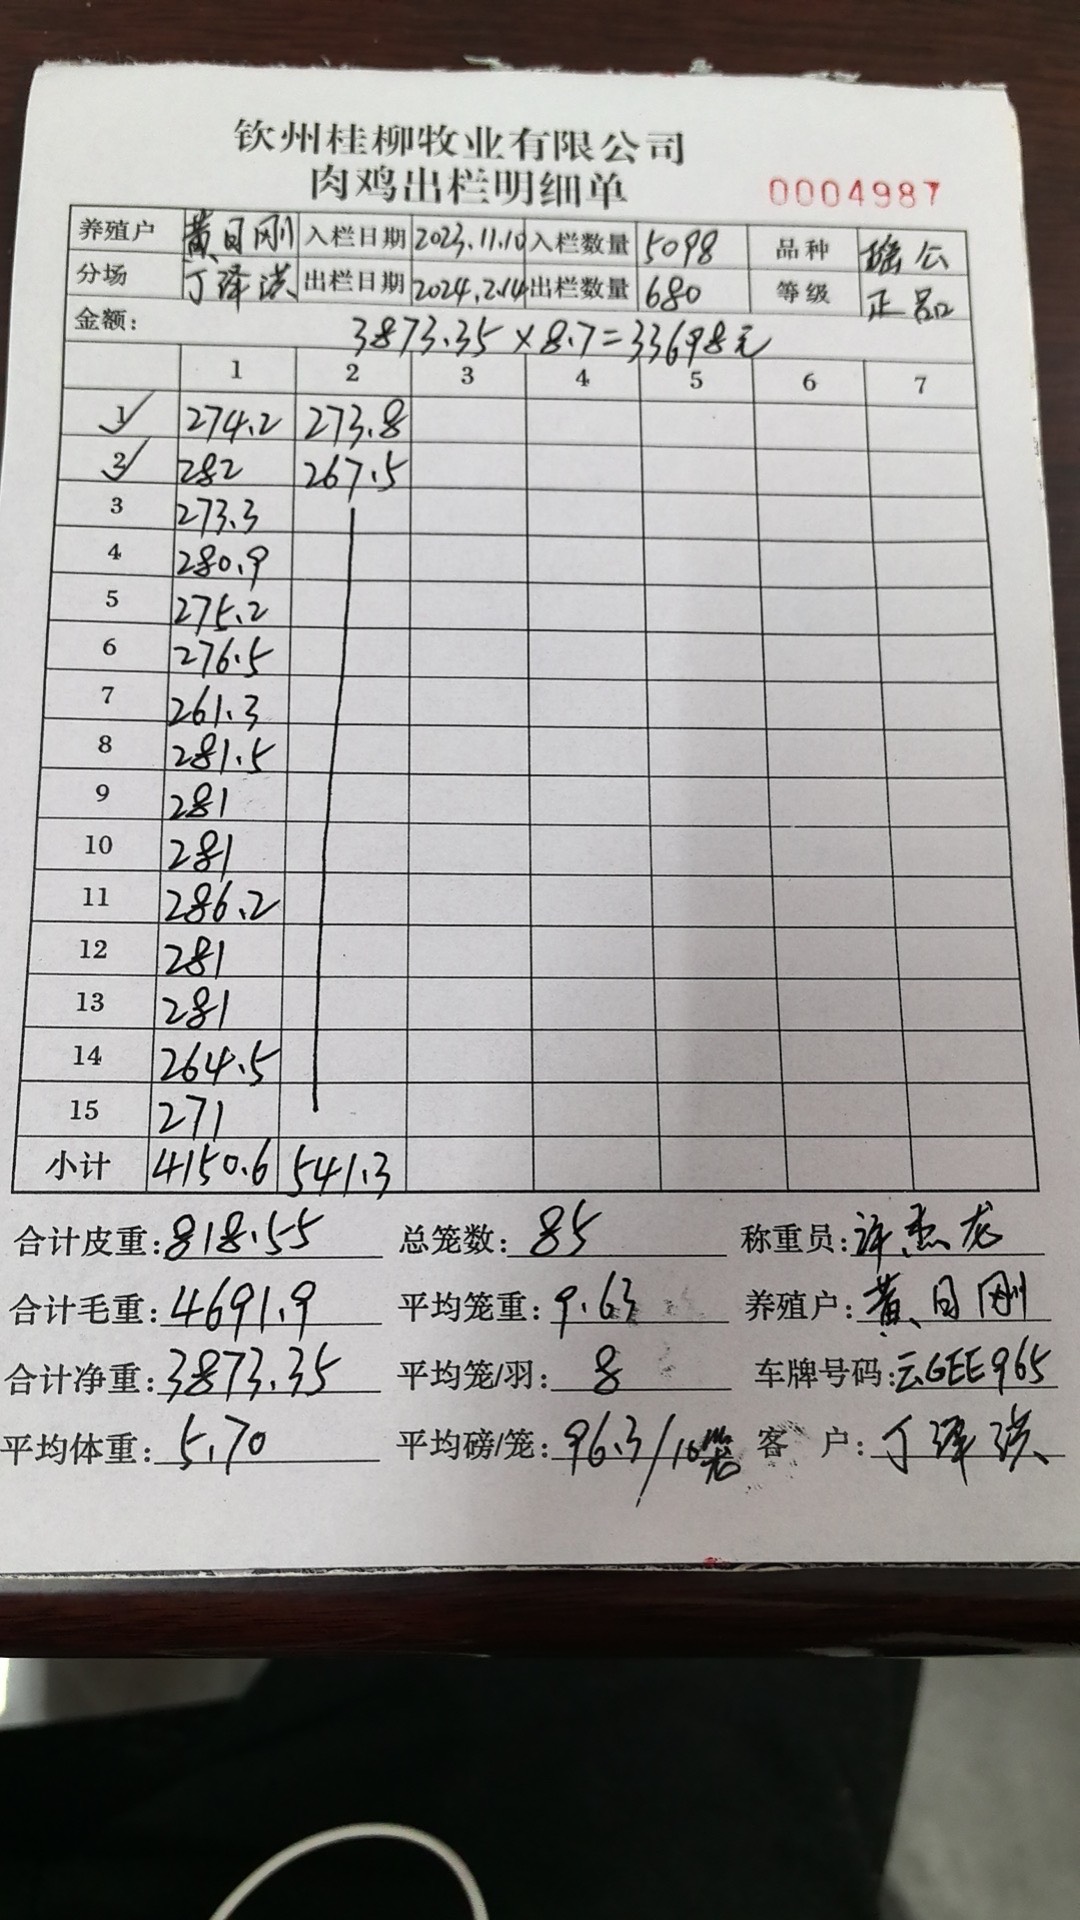 钦州桂柳牧业有限公司
肉鸡出栏明细单
0004987
养殖户 黄日刚 入栏日期 2023.11.10 入栏数量 5098 品种 瑶公
分场 丁泽洪 出栏日期 2024.2.14 出栏数量 680 等级 正品
金额: 3873.35×8.7=33698元
1 2 3 4 5 6 7
1 274.2 273.8
2 282 267.5
3 273.3
4 280.9
5 275.2
6 276.5
7 261.3
8 281.5
9 281
10 281
11 286.2
12 281
13 281
14 264.5
15 271
小计 4150.6 541.3
合计皮重: 818.55 总笼数: 85 称重员: 许杰龙
合计毛重: 4691.9 平均笼重: 9.63 养殖户: 黄日刚
合计净重: 3873.35 平均笼/羽: 8 车牌号码: 云GEE965
平均体重: 5.70 平均磅/笼: 96.3/10笼 客户: 丁泽洪